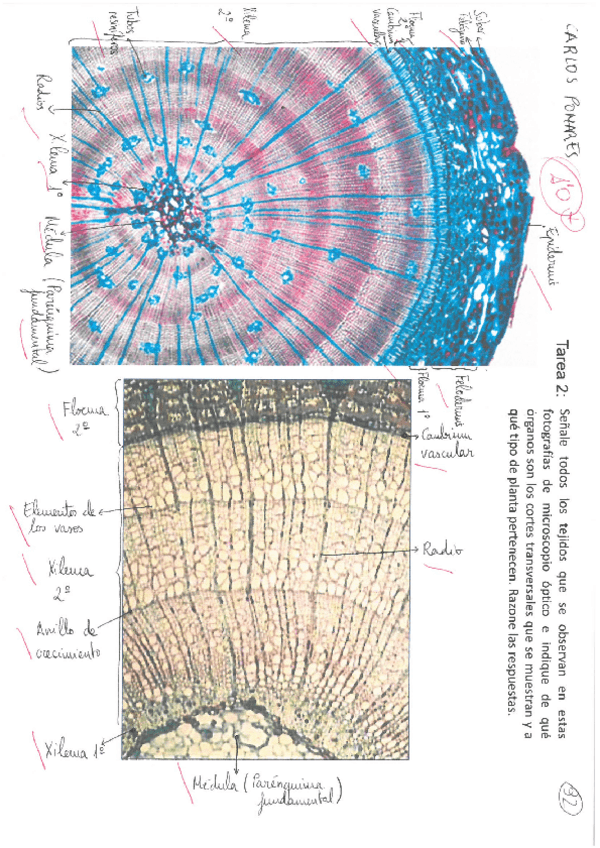 CARLOS POMARES
10
92
Tarea 2: Señale todos los tejidos que se observan en estas
fotografías de microscopio óptico e indique de qué
órganos son los cortes transversales que se muestran y a
qué tipo de planta pertenecen. Razone las respuestas.
Epidermis
Súber
Felógeno
Floema
2º
Cambium
vascular
Xilema
2º
Tubos
resiníferos
Radios
Xilema 1º
Médula (Parénquima
fundamental)
Felodermis
Floema 1º
Cambium
vascular
Radio
Floema
2º
Elementos de
los vasos
Xilema
2º
Anillo de
crecimiento
Xilema 1º
Médula (Parénquima
fundamental)